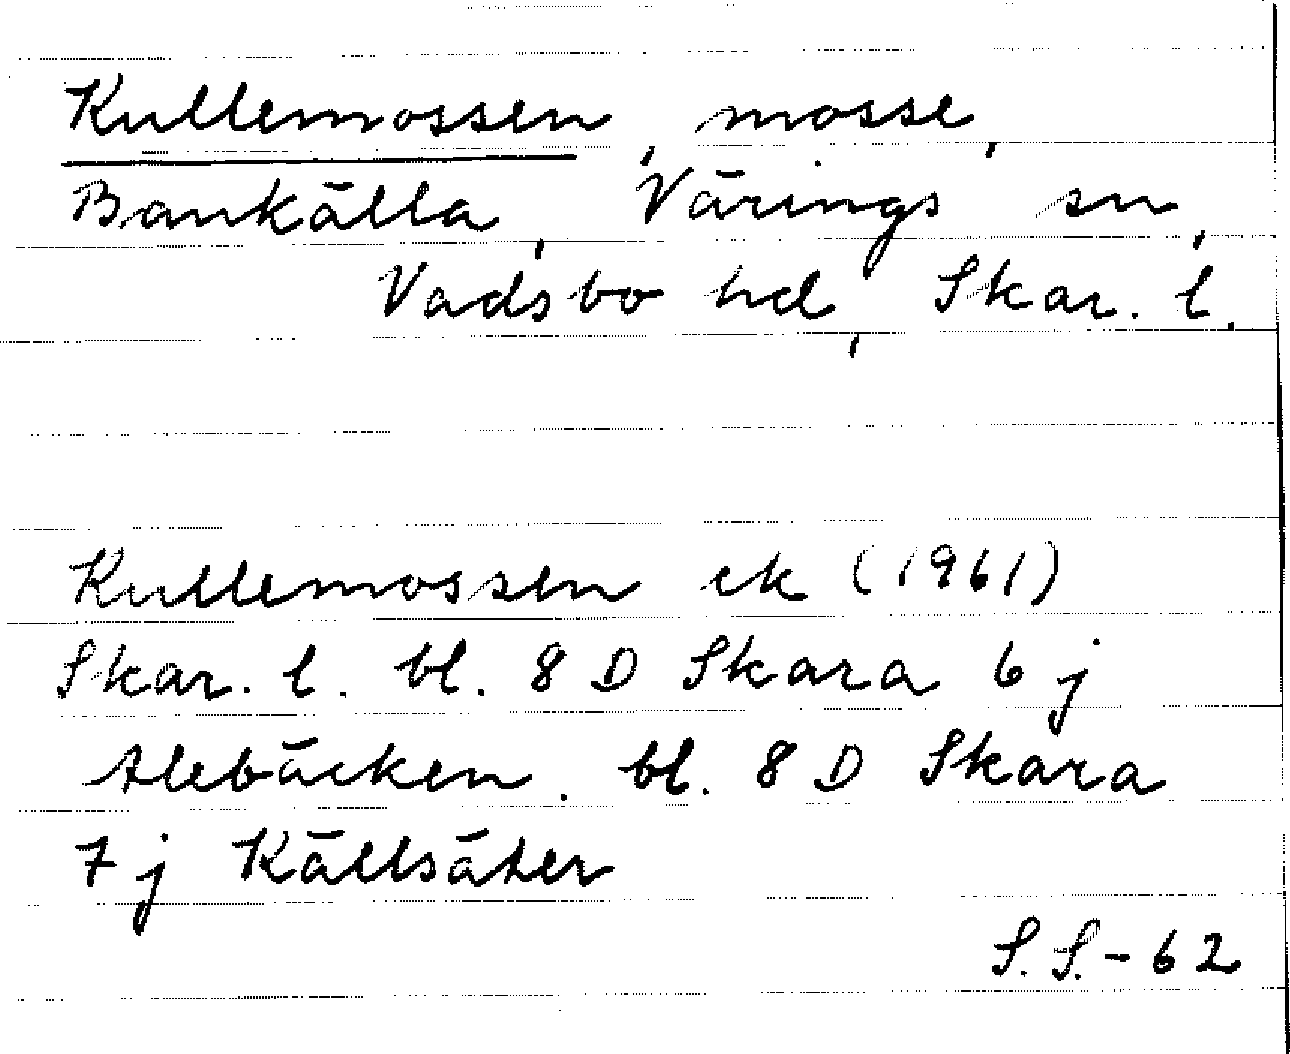 Kullemossen, mosse,
Bankälla, Värings sn,
Vadsbo hd, Skar. l.
Kullemossen ek (1961)
Skar. l. bl. 8 D Skara 6 j
Alebäcken. bl. 8 D Skara
7 j Källsäter
S.S.-62